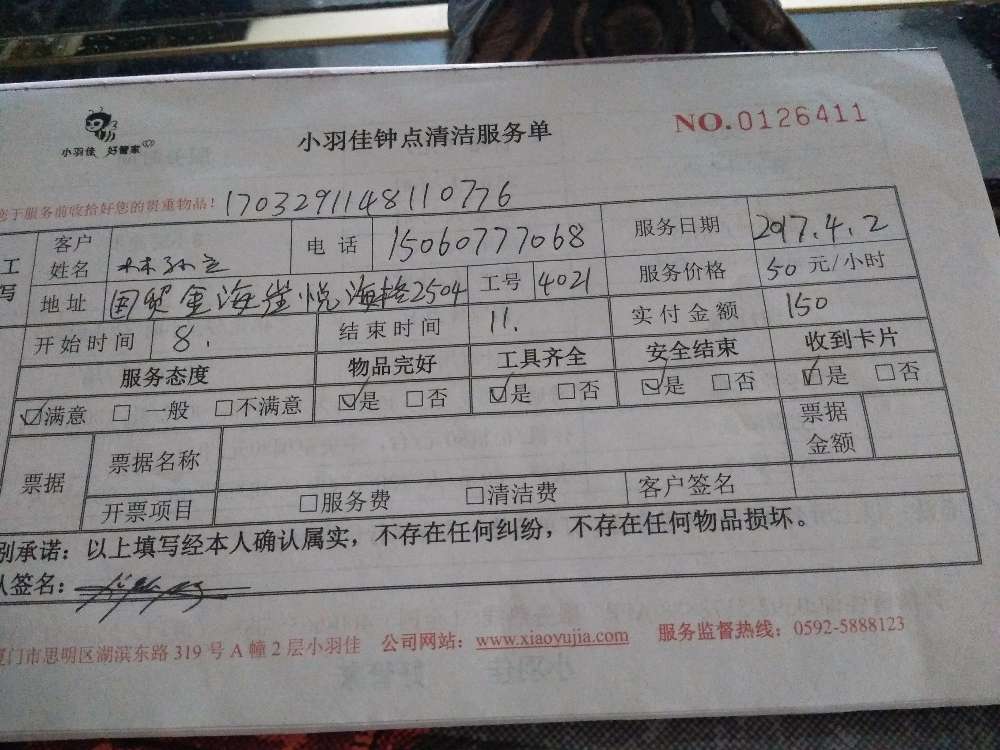 小羽佳 好管家
小羽佳钟点清洁服务单
NO.0126411
您于服务前收拾好您的贵重物品! 1703291148110776
工 客户姓名 电话 15060777068 服务日期 2017.4.2
写 地址 国贸金海岸悦海楼2504 工号 4021 服务价格 50 元/小时
开始时间 8. 结束时间 11. 实付金额 150
服务态度 物品完好 工具齐全 安全结束 收到卡片
☑满意 □ 一般 □不满意 ☑是 □否 ☑是 □否 ☑是 □否 ☑是 □否
票据 票据名称 票据金额
开票项目 □服务费 □清洁费 客户签名
别承诺：以上填写经本人确认属实，不存在任何纠纷，不存在任何物品损坏。
人签名：
厦门市思明区湖滨东路 319 号 A 幢 2 层小羽佳 公司网站：www.xiaoyujia.com 服务监督热线：0592-5888123